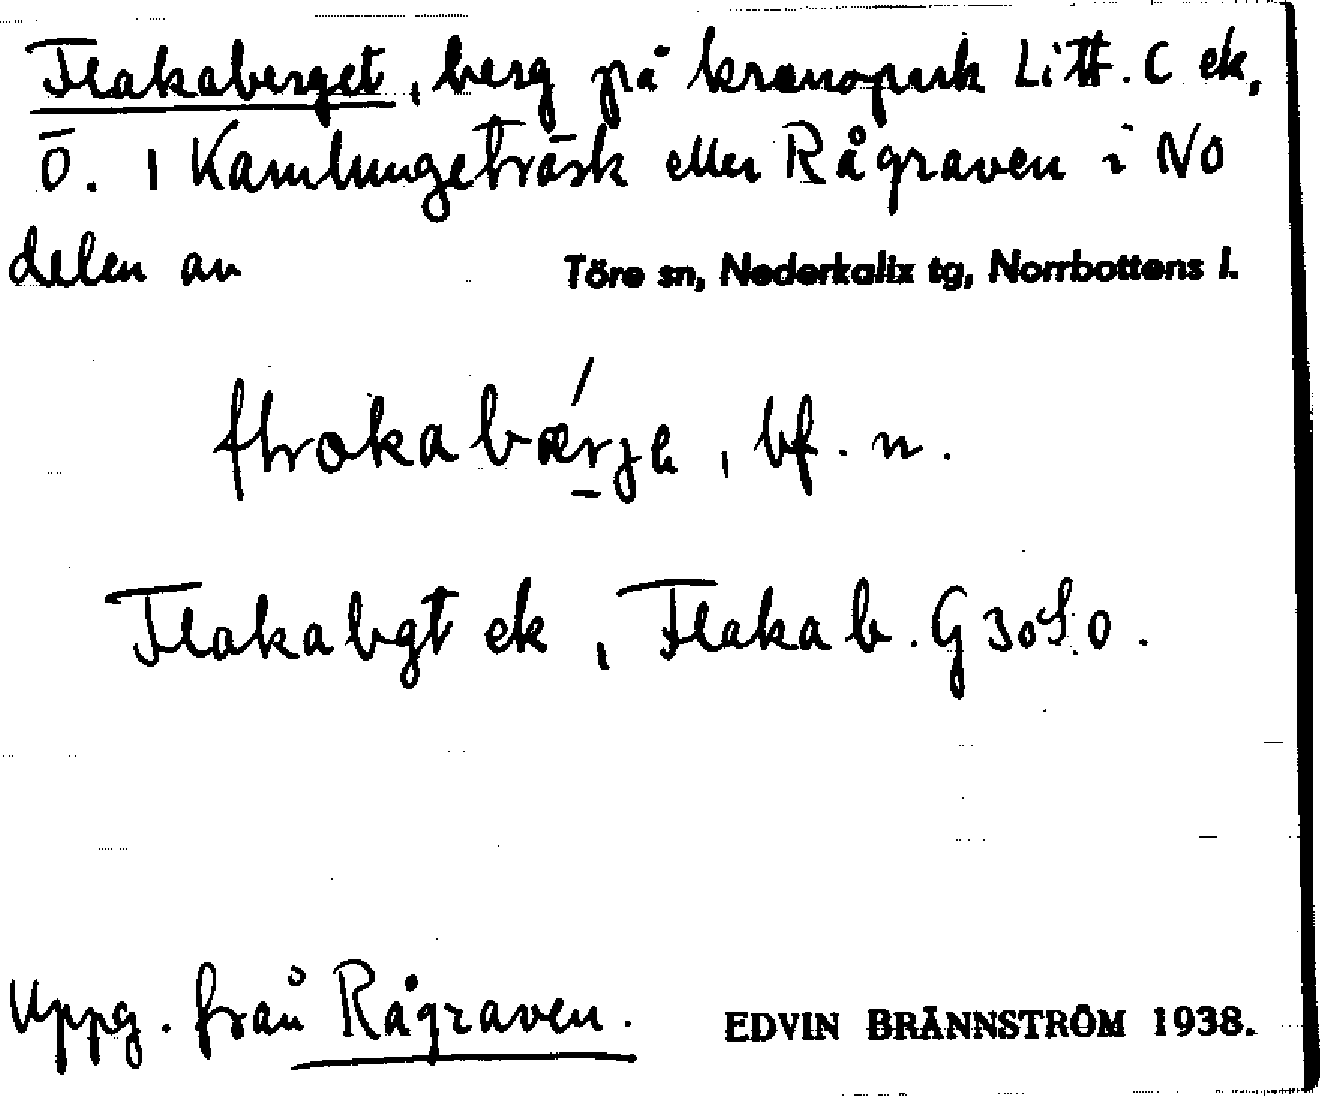 Flakaberget, berg på kronopark Litt. C ek,
Ö. 1 Kamlungeträsk eller Rågraven i NO
delen av Töre sn, Nederkalix tg, Norrbottens l.
bf. n.
Flakabgt ek, Flakab. G 30 S.O.
Uppg. från Rågraven. EDVIN BRÄNNSTRÖM 1938.